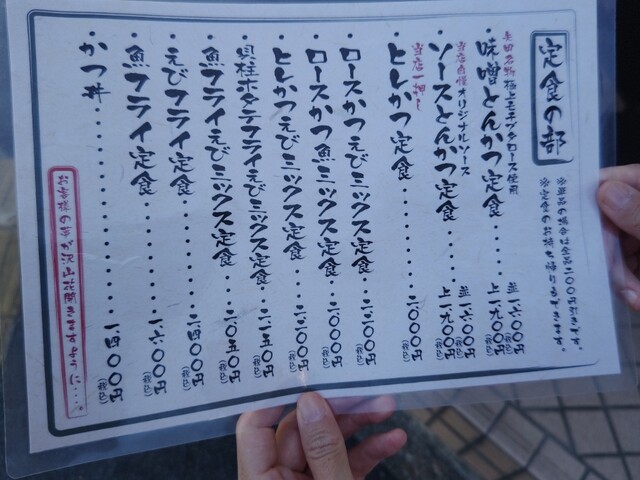 定食の部
※単品の場合は全品二〇〇円引きです。
※定食のお持ち帰りもできます。
名物 極上モチブタロース使用
・味噌とんかつ定食・・・並 一六〇〇円
上 一九〇〇円
当店自慢オリジナルソース
・ソースとんかつ定食・・・並 一六〇〇円
上 一九〇〇円(税込)
当店一押し
・ヒレかつ定食・・・・・・・二〇〇〇円(税込)
・ロースかつえびミックス定食・・・円(税込)
・ロースかつ魚ミックス定食・・・二〇〇〇円(税込)
・ヒレかつえびミックス定食・・・円(税込)
・貝柱ホタテフライえびミックス定食・二一五〇円(税込)
・魚フライえびミックス定食・・・二〇五〇円(税込)
・えびフライ定食・・・・・・・円(税込)
・魚フライ定食・・・・・・・一六〇〇円(税込)
・かつ丼・・・・・・・・・・一四〇〇円(税込)